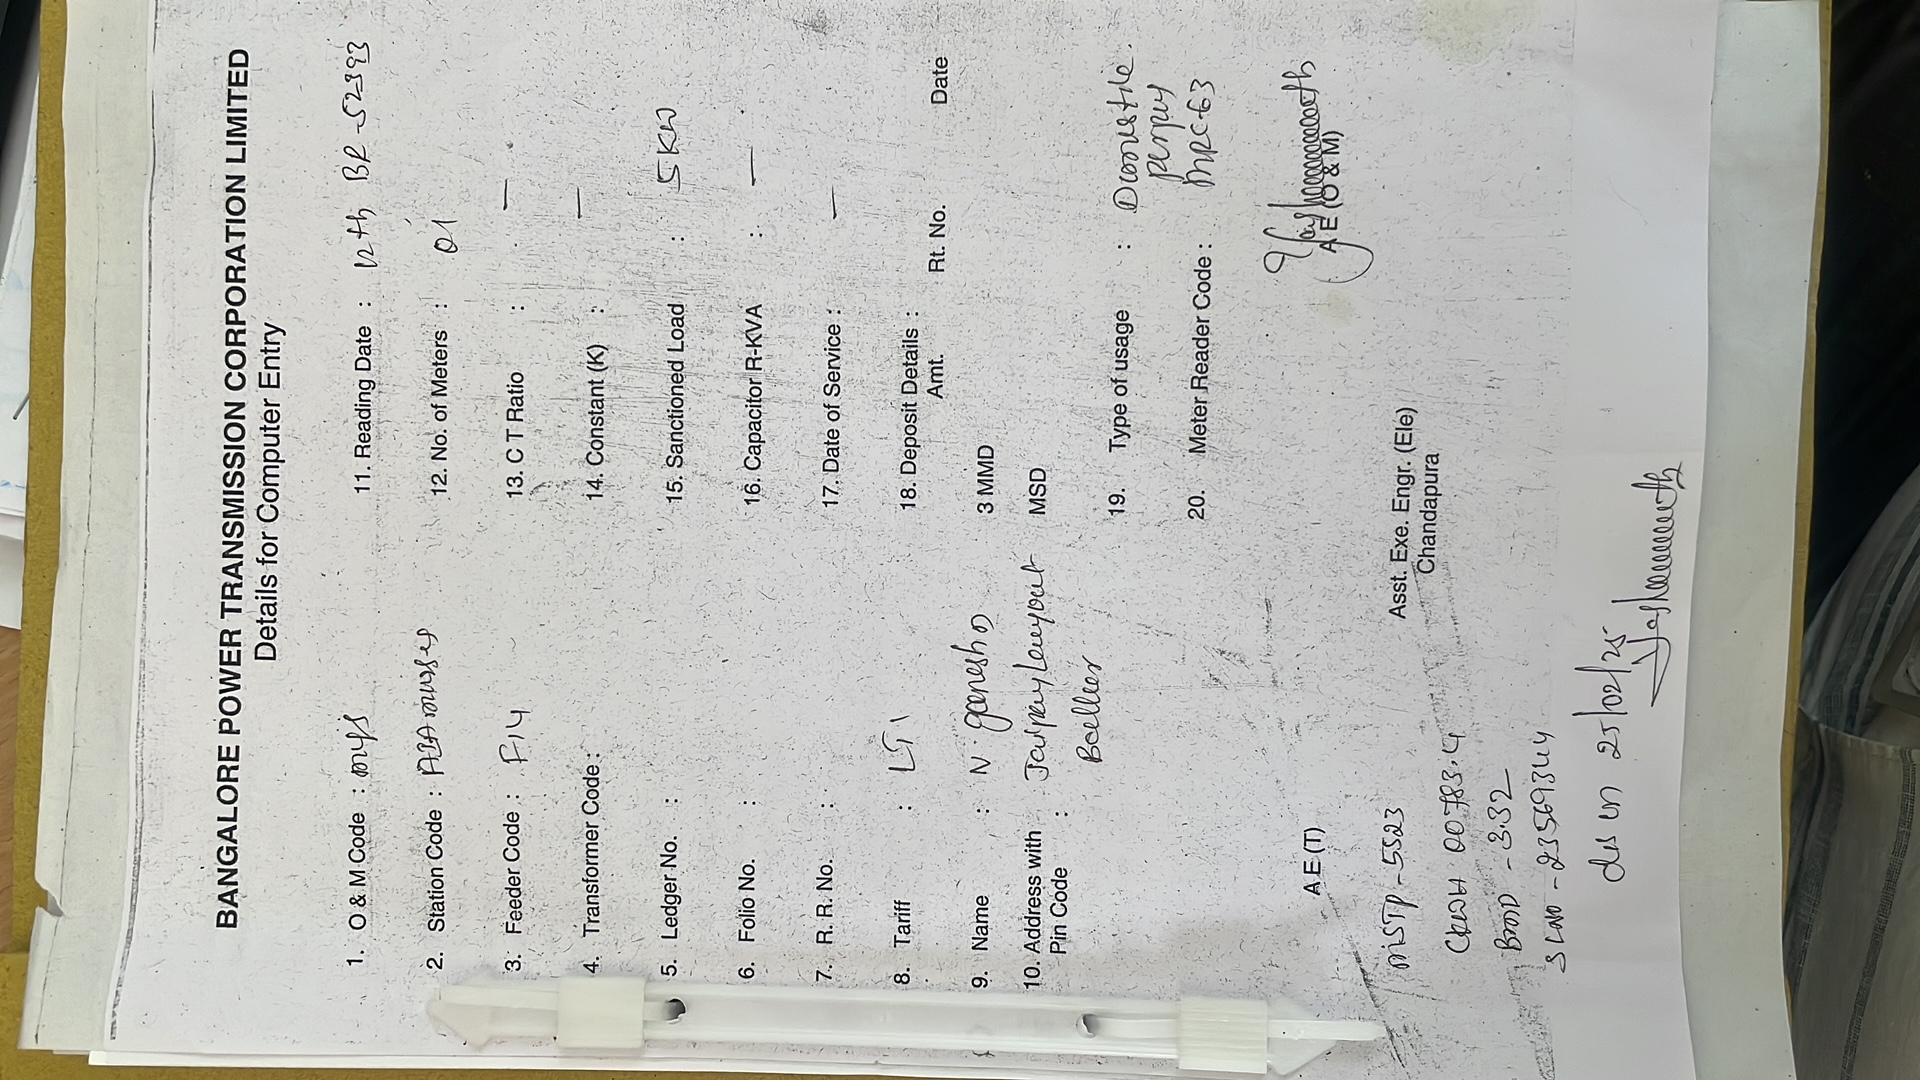 BANGALORE POWER TRANSMISSION CORPORATION LIMITED
Details for Computer Entry
1. O & M Code :
2. Station Code :
3. Feeder Code : F14
4. Transformer Code :
5. Ledger No. :
6. Folio No. :
7. R. R. No. :
8. Tariff : LT1
9. Name : N. Ganesh
10. Address with
Pin Code :
11. Reading Date : 12th BR-52393
12. No. of Meters : 01
13. C T Ratio : —
14. Constant (K) : —
15. Sanctioned Load : 5KW
16. Capacitor R-KVA : —
17. Date of Service : —
18. Deposit Details :
Amt. Rt. No. Date
3 MMD
MSD
19. Type of usage :
20. Meter Reader Code : MRC-63
A E (T)
A E (O & M)
Asst. Exe. Engr. (Ele)
Chandapura
MSTP-5523
CKWH 00783.4
BMD - 3.32
SLNO - 23569344
25/02/25